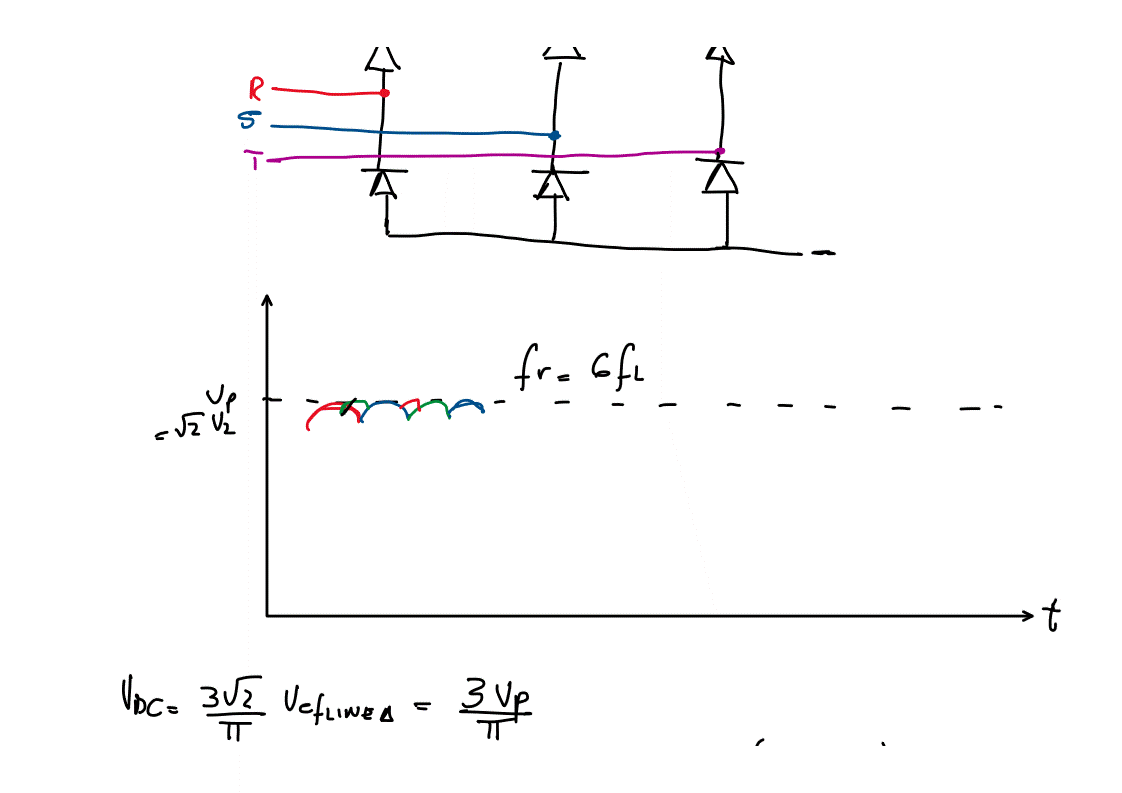 R
S
T
–
fr = 6fL
Vp
= √2 V2
t
VDC = 3√2/π Vef LINEA = 3 Vp/π